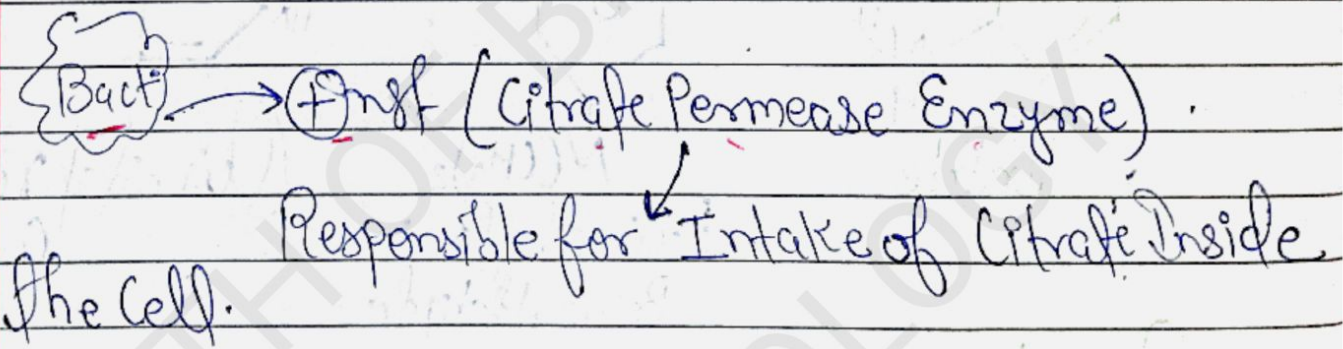 Bact → ⊕nst (Citrate Permease Enzyme).
Responsible for Intake of Citrate Inside
the Cell.